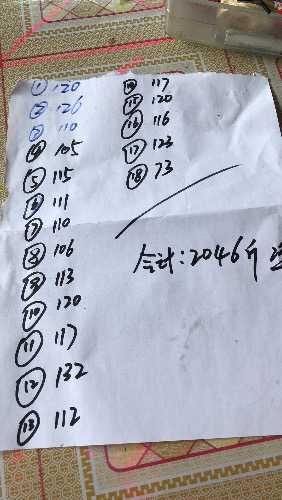 ① 120
② 126
③ 110
④ 105
⑤ 115
⑥ 111
⑦ 110
⑧ 106
⑨ 113
⑩ 120
⑪ 117
⑫ 132
⑬ 112
⑭ 117
⑮ 120
⑯ 116
⑰ 123
⑱ 73
合计:2046斤